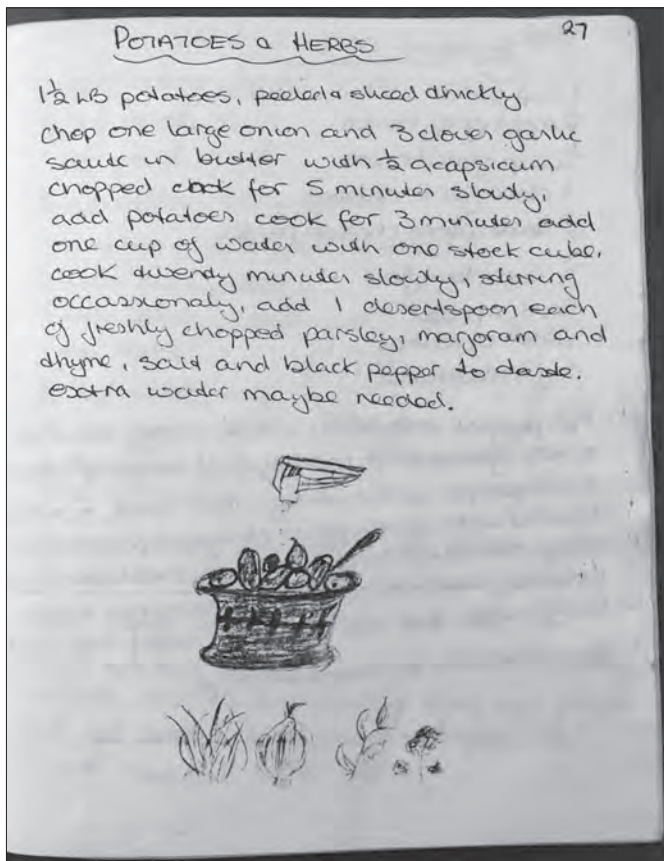 27
POTATOES & HERBS
1½ LB potatoes, peeled & sliced thickly
chop one large onion and 3 cloves garlic
sauté in butter with ½ a capsicum
chopped cook for 5 minutes slowly,
add potatoes cook for 3 minutes add
one cup of water with one stock cube.
cook twenty minutes slowly, stirring
occassionaly, add 1 desertspoon each
of freshly chopped parsley, marjoram and
thyme, salt and black pepper to taste.
extra water maybe needed.